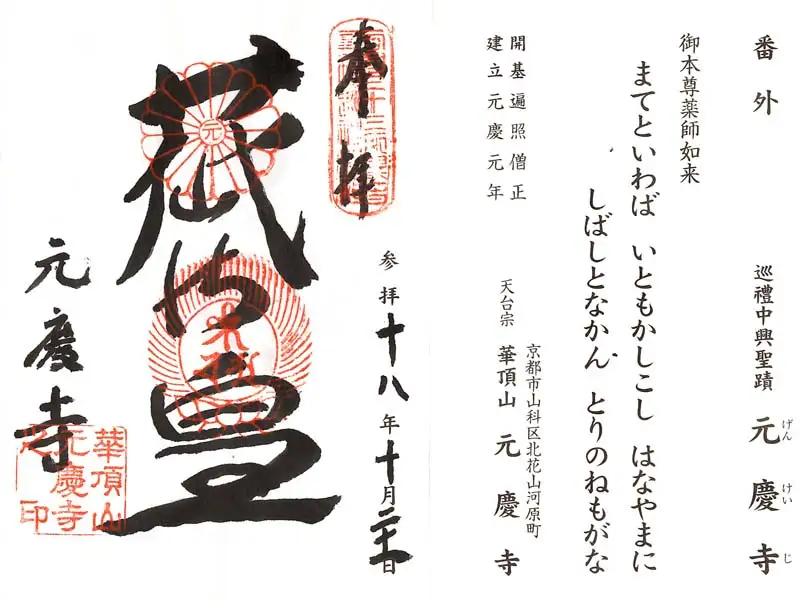 番外 巡禮中興聖蹟 元慶寺
げん けい じ
御本尊薬師如来
まてといわば いともかしこし はなやまに
しばしとなかん とりのねもがな
開基遍照僧正
建立元慶元年
京都市山科区北花山河原町
天台宗 華頂山 元慶寺
奉拝
参拝十八年十月日
元
元慶寺
華頂山
元慶寺
之印